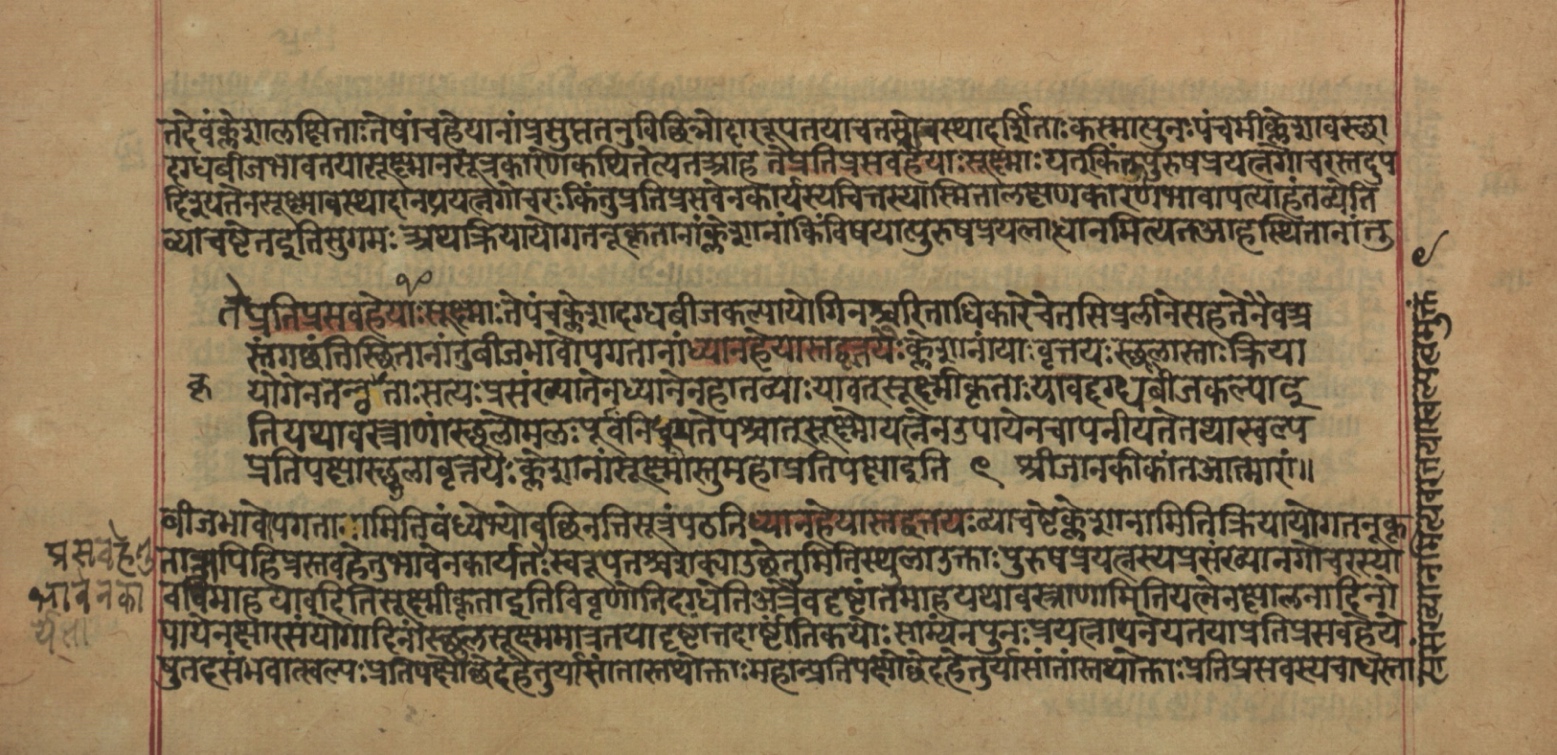 तदेवंक्लेशालक्षिताःतेषांचहेयानांप्रसुप्ततनुविछिन्नोदाररूपतयाचतस्रोवस्थादर्शिताःकस्मात्पुनःपंचमीक्लेशावस्छा
दग्धबीजभावतयासूक्ष्मानसूत्रकारेणकथितेत्यतआह तेप्रतिप्रसवहेयाःसूक्ष्माः यत्किंतुपुरुषप्रयत्नगोचरस्तदुप
दिश्यतेनसूक्ष्मावस्थादानप्रयत्नगोचरःकिंतुप्रतिप्रसवेनकार्यस्यचित्तस्यास्मितालक्षणकारणभावापत्त्याहंतव्येति
व्याचष्टेतइतिसुगमः अथक्रियायोगतनूकृतानांक्लेशानांकिंविषयात्पुरुषप्रयत्नाद्धानमित्यतआहस्थितानांतु
तेप्रतिप्रसवहेयाःसूक्ष्माःतेपंचक्लेशादग्धबीजकल्पायोगिनश्चरिताधिकारेचेतसिप्रलीनेसहतेनैवअ
स्तंगछंतिस्छितानांतुबीजभावोपगतानांध्यानहेयास्तद्वृत्तयःक्लेशानांयाःवृत्तयःस्छूलास्ताःक्रिया
योगेनतनूकृताःसत्यःप्रसंख्यातेनध्यानेनहातव्याःयावत्सूक्ष्मीकृताःयावद्दग्धबीजकल्पाइ
तियथावस्त्राणांस्छूलोमलःपूर्वंनिर्धूयतेपश्चात्सूक्ष्मोयत्नेनउपायेनचापनीयतेतथास्वल्प
प्रतिपक्षास्छूलावृत्तयःक्लेशानांसूक्ष्मास्तुमहाप्रतिपक्षाइति ९ श्रीजानकीकांतआत्मारां॥
बीजभावोपगतानामितिवंध्येभ्योवछिनत्तिसूत्रंपठतिध्यानहेयास्तद्वृत्तयःव्याचष्टेक्लेशानामितिक्रियायोगतनूकृ
ताअपिहिप्रसवहेतुभावेनकार्यतःस्वरूपतश्चशक्याउछेतुमितिस्थूलाउक्ताःपुरुषप्रयत्नस्यप्रसंख्यानगोचरस्या
वधिमाहयावदितिसूक्ष्मीकृताइतिविवृणोतिदग्धेतिअत्रैवदृष्टांतमाहयथावस्त्राणामितियत्नेनक्षालनादिनो
पायेनक्षारसंयोगादिनास्छूलसूक्ष्ममात्रतयादृष्टांतदार्ष्टांतिकयोःसाम्यंनपुनःप्रयत्नापनेयतयाप्रतिप्रसवहेये
षुतदसंभवात्स्वल्पःप्रतिपक्षोछेदहेतुर्यासांतास्तथोक्ताःमहान्प्रतिपक्षोछेदहेतुर्यासांतांस्तथोक्ताःप्रतिप्रसवस्यचाधस्ता
प्रसवहेतु
भावेनका
र्यता